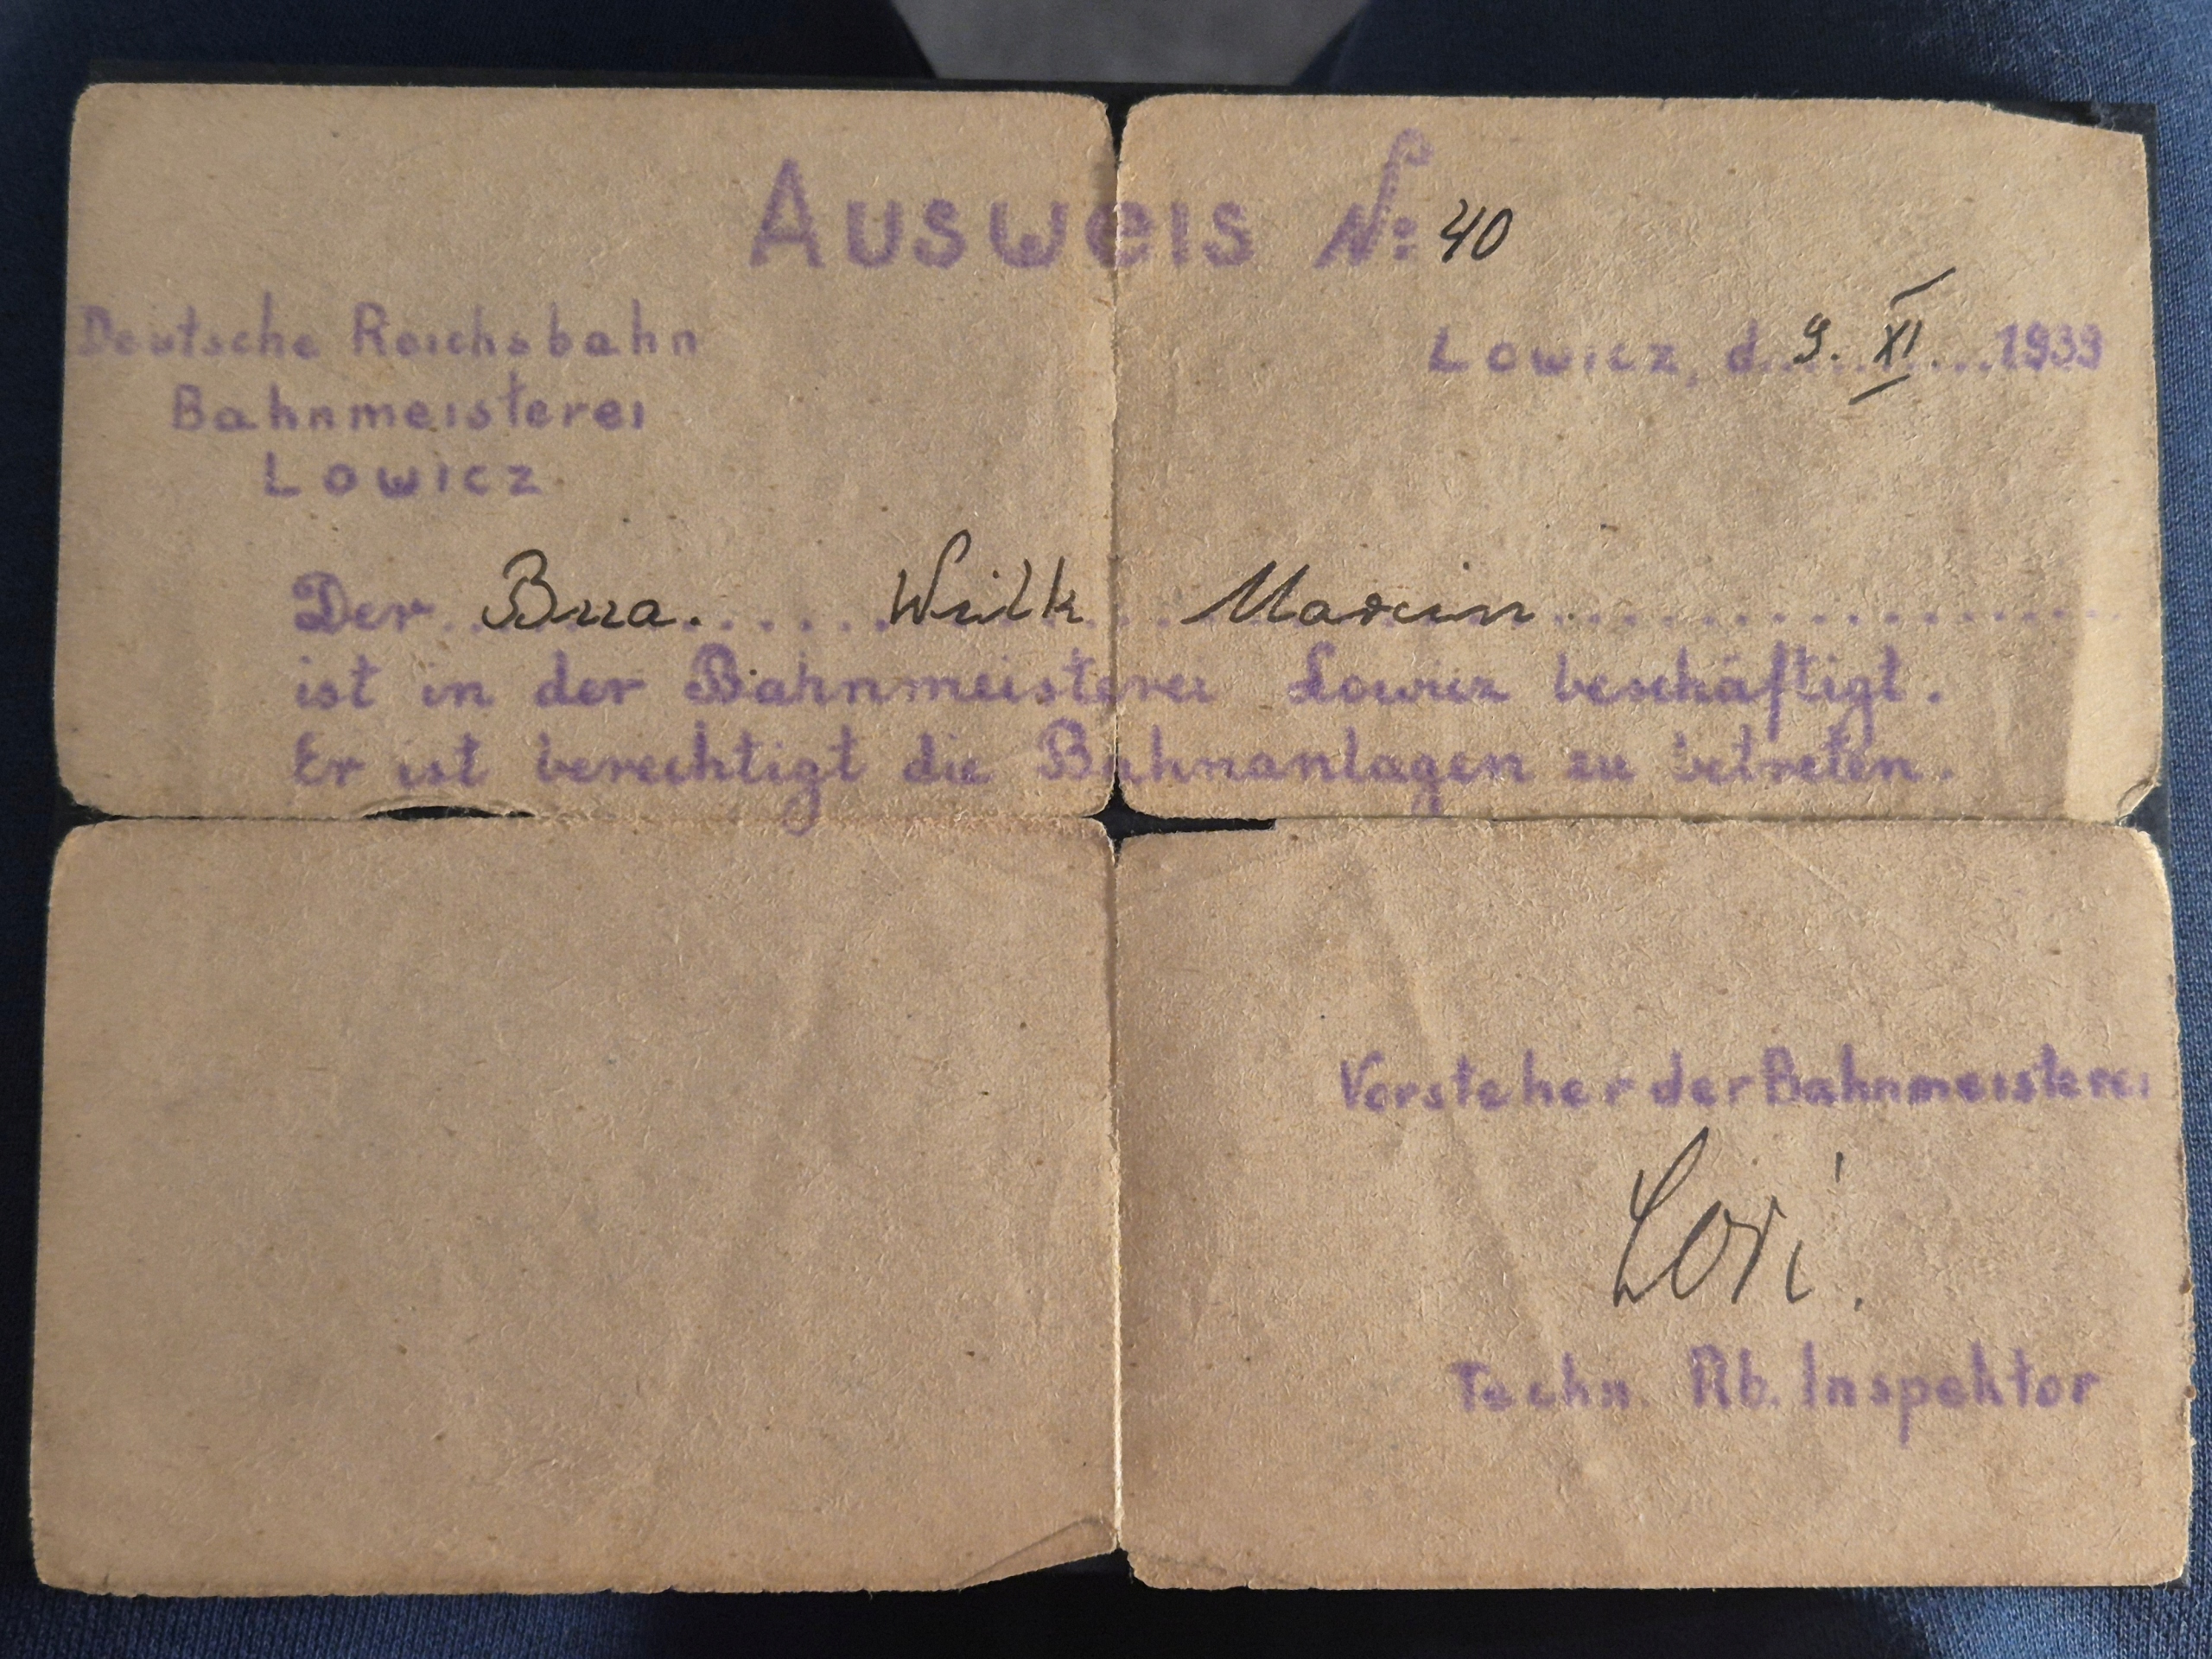 Ausweis №: 40
Deutsche Reichsbahn
Bahnmeisterei
Lowicz
Lowicz, d. 9. XI. 1939
Der Bua. Wilk Marcin
ist in der Bahnmeisterei Lowicz beschäftigt.
Er ist berechtigt die Bahnanlagen zu betreten.
Vorsteher der Bahnmeisterei
Lori.
Techn. Rb. Inspektor